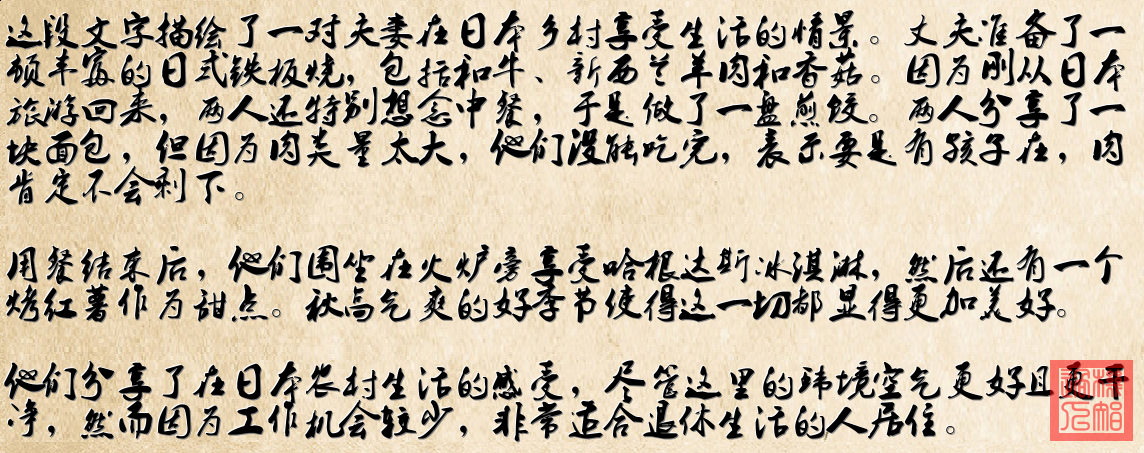 这段文字描绘了一对夫妻在日本乡村享受生活的情景。丈夫准备了一
顿丰富的日式铁板烧，包括和牛、新西兰羊肉和香菇。因为刚从日本
旅游回来，两人还特别想念中餐，于是做了一盘煎饺。两人分享了一
块面包，但因为肉类量太大，他们没能吃完，表示要是有孩子在，肉
肯定不会剩下。
用餐结束后，他们围坐在火炉旁享受哈根达斯冰淇淋，然后还有一个
烤红薯作为甜点。秋高气爽的好季节使得这一切都显得更加美好。
他们分享了在日本农村生活的感受，尽管这里的环境空气更好且更干
净，然而因为工作机会较少，非常适合退休生活的人居住。